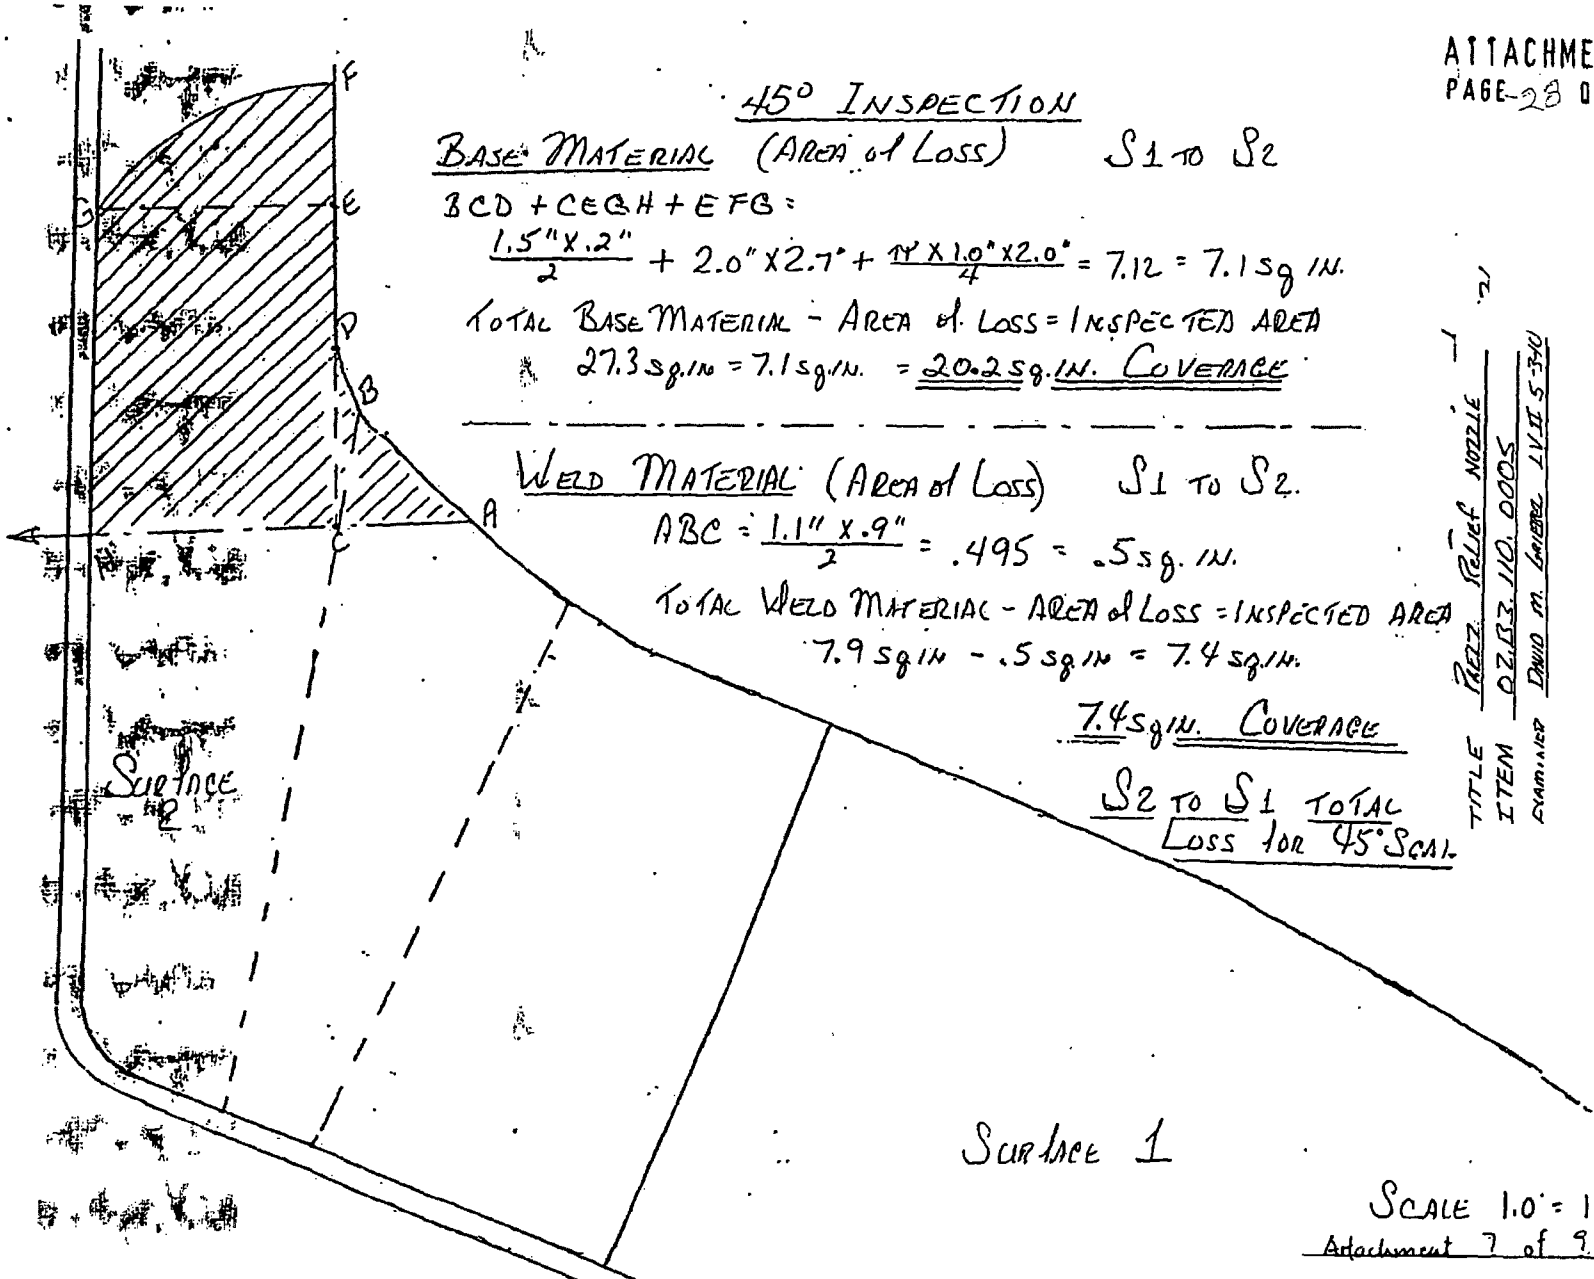 ATTACHME
PAGE 23 O
45° INSPECTION
BASE MATERIAL (AREA of LOSS) S1 TO S2
BCD + CEGH + EFG =
1.5" X .2" / 2 + 2.0" X 2.7" + π X 1.0" X 2.0" / 4 = 7.12 = 7.1 sq IN.
TOTAL BASE MATERIAL - AREA of LOSS = INSPECTED AREA
27.3 sq.IN = 7.1 sq.IN. = 20.2 sq.IN. COVERAGE
WELD MATERIAL (AREA of LOSS) S1 TO S2.
ABC = 1.1" X .9" / 2 = .495 = .5 sq. IN.
TOTAL WELD MATERIAL - AREA of LOSS = INSPECTED AREA
7.9 sq IN - .5 sq IN = 7.4 sq.IN.
7.4 sq IN. COVERAGE
S2 TO S1 TOTAL
LOSS for 45° SCAN
F
E
G
D
B
A
C
H
SURFACE
2
SURFACE 1
TITLE PREZ Relief NOZZLE
ITEM 02.B3.110.0005
EXAMINER DAVID M. LVII
SCALE 1.0" = 1
Attachment 7 of 9